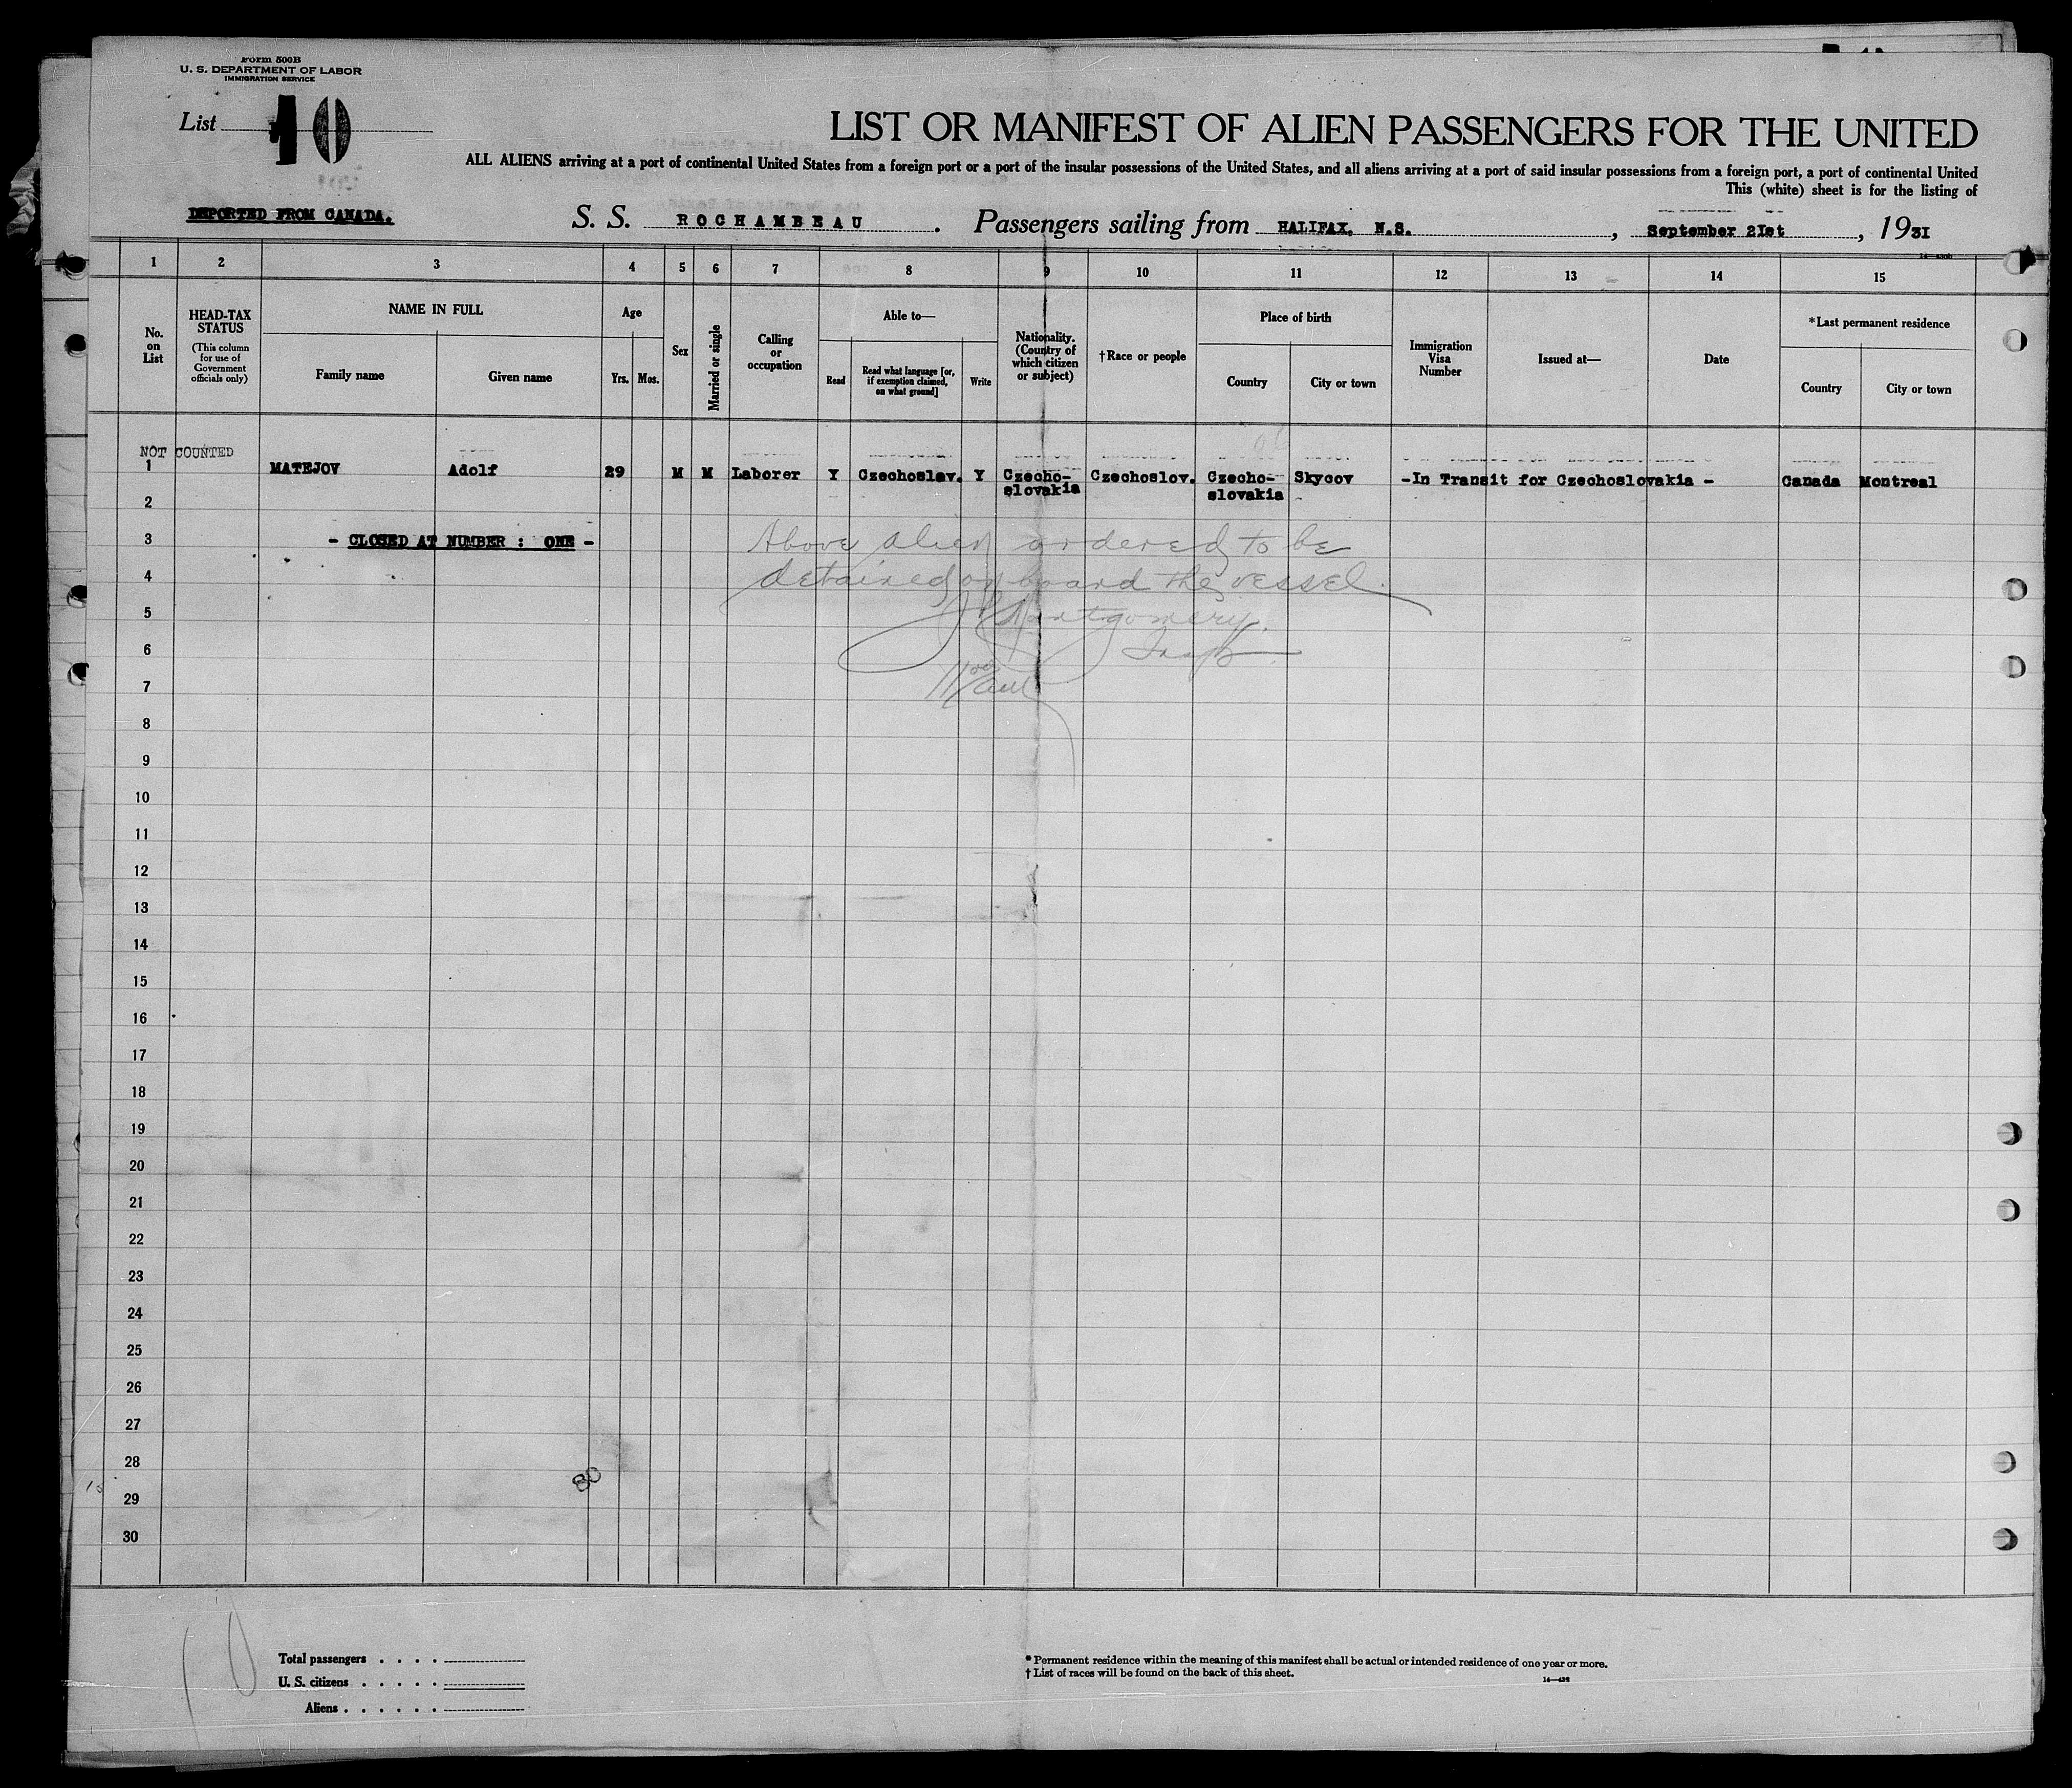 Form 500B
U. S. DEPARTMENT OF LABOR
IMMIGRATION SERVICE
List 10
LIST OR MANIFEST OF ALIEN PASSENGERS FOR THE UNITED
ALL ALIENS arriving at a port of continental United States from a foreign port or a port of the insular possessions of the United States, and all aliens arriving at a port of said insular possessions from a foreign port, a port of continental United
This (white) sheet is for the listing of
DEPORTED FROM CANADA. S. S. ROCHAMBEAU . Passengers sailing from HALIFAX, N.S. , September 2Ist , 1931
1 2 3 4 5 6 7 8 9 10 11 12 13 14 15
No. on List
HEAD-TAX STATUS (This column for use of Government officials only)
NAME IN FULL
Family name Given name
Age
Yrs. Mos.
Sex
Married or single
Calling or occupation
Able to—
Read Read what language [or, if exemption claimed, on what ground] Write
Nationality. (Country of which citizen or subject)
†Race or people
Place of birth
Country City or town
Immigration Visa Number
Issued at—
Date
*Last permanent residence
Country City or town
NOT COUNTED
1 MATEJOV Adolf 29 M M Laborer Y Czechoslav. Y Czecho-slovakia Czechoslov. Czecho-slovakia Skycov -In Transit for Czechoslovakia - Canada Montreal
2
3 - CLOSED AT NUMBER : ONE - Above alien ordered to be
4 detained on board the vessel.
5 Montgomery
6 Insp
7
8
9
10
11
12
13
14
15
16
17
18
19
20
21
22
23
24
25
26
27
28
29
30
10
Total passengers . . . .
U. S. citizens . . . . .
Aliens . . . . . .
* Permanent residence within the meaning of this manifest shall be actual or intended residence of one year or more.
† List of races will be found on the back of this sheet.